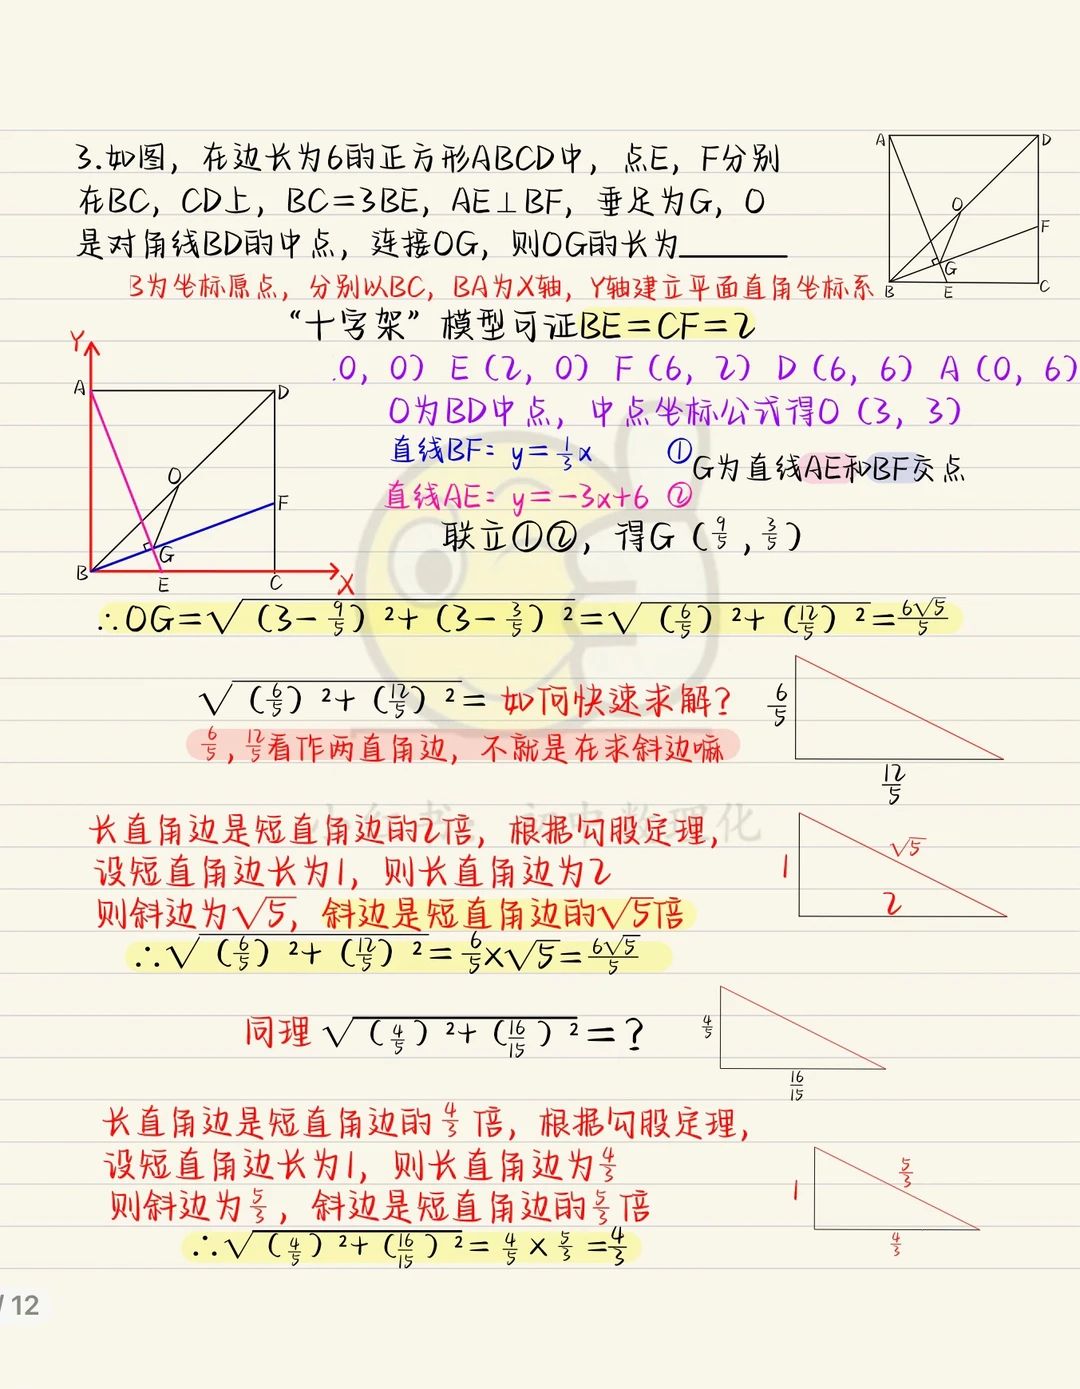 3.如图，在边长为6的正方形ABCD中，点E，F分别
在BC，CD上，BC=3BE，AE⊥BF，垂足为G，O
是对角线BD的中点，连接OG，则OG的长为________
A D O F G B E C
B为坐标原点，分别以BC，BA为X轴，Y轴建立平面直角坐标系
“十字架”模型可证BE=CF=2
0，0） E（2，0） F（6，2） D（6，6） A（0，6）
O为BD中点，中点坐标公式得O（3，3）
直线BF：y=1/3x ①
G为直线AE和BF交点
直线AE：y=-3x+6 ②
联立①②，得G（9/5，3/5）
Y A D O F G B E C X
∴OG=√(（3-9/5）²+（3-3/5）²)=√(（6/5）²+（12/5）²)=6√5/5
√(（6/5）²+（12/5）²)= 如何快速求解？
6/5，12/5看作两直角边，不就是在求斜边嘛
6/5
12/5
小红书：初中数理化
长直角边是短直角边的2倍，根据勾股定理，
设短直角边长为1，则长直角边为2
则斜边为√5，斜边是短直角边的√5倍
1 √5 2
∴√(（6/5）²+（12/5）²)=6/5×√5=6√5/5
同理√(（4/5）²+（16/15）²)=？
4/5
16/15
长直角边是短直角边的4/3倍，根据勾股定理，
设短直角边长为1，则长直角边为4/3
则斜边为5/3，斜边是短直角边的5/3倍
1 5/3 4/3
∴√(（4/5）²+（16/15）²)=4/5×5/3=4/3
/12